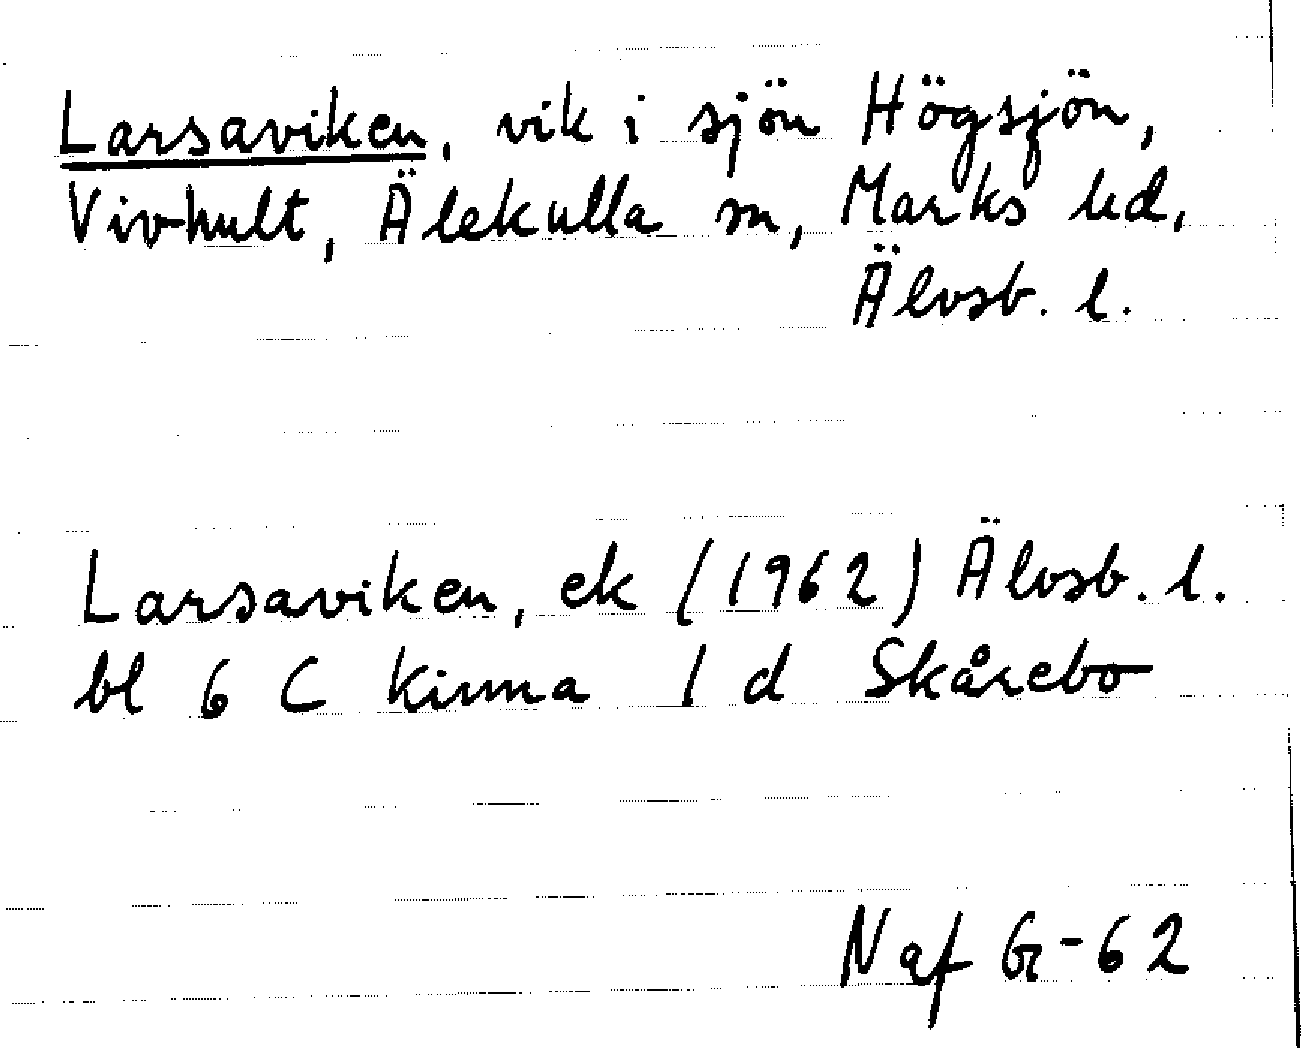 Larsaviken, vik i sjön Högsjön,
Vivhult, Älekulla sn, Marks hd,
Älvsb. l.
Larsaviken, ek (1962) Älvsb. l.
bl 6 C Kinna 1 d Skårebo
Naf G-62